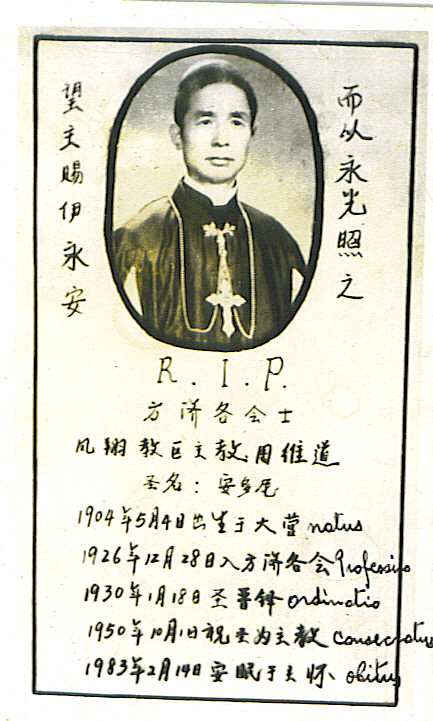 望主赐伊永安
而以永光照之
R. I. P.
方济各会士
凤翔教区主教周维道
圣名：安多尼
1904年5月4日出生于大营 natus
1926年12月28日入方济各会 Professio
1930年1月18日圣晋铎 ordinatio
1950年10月1日祝圣为主教 consecratus
1983年2月14日安眠于主怀 obitus